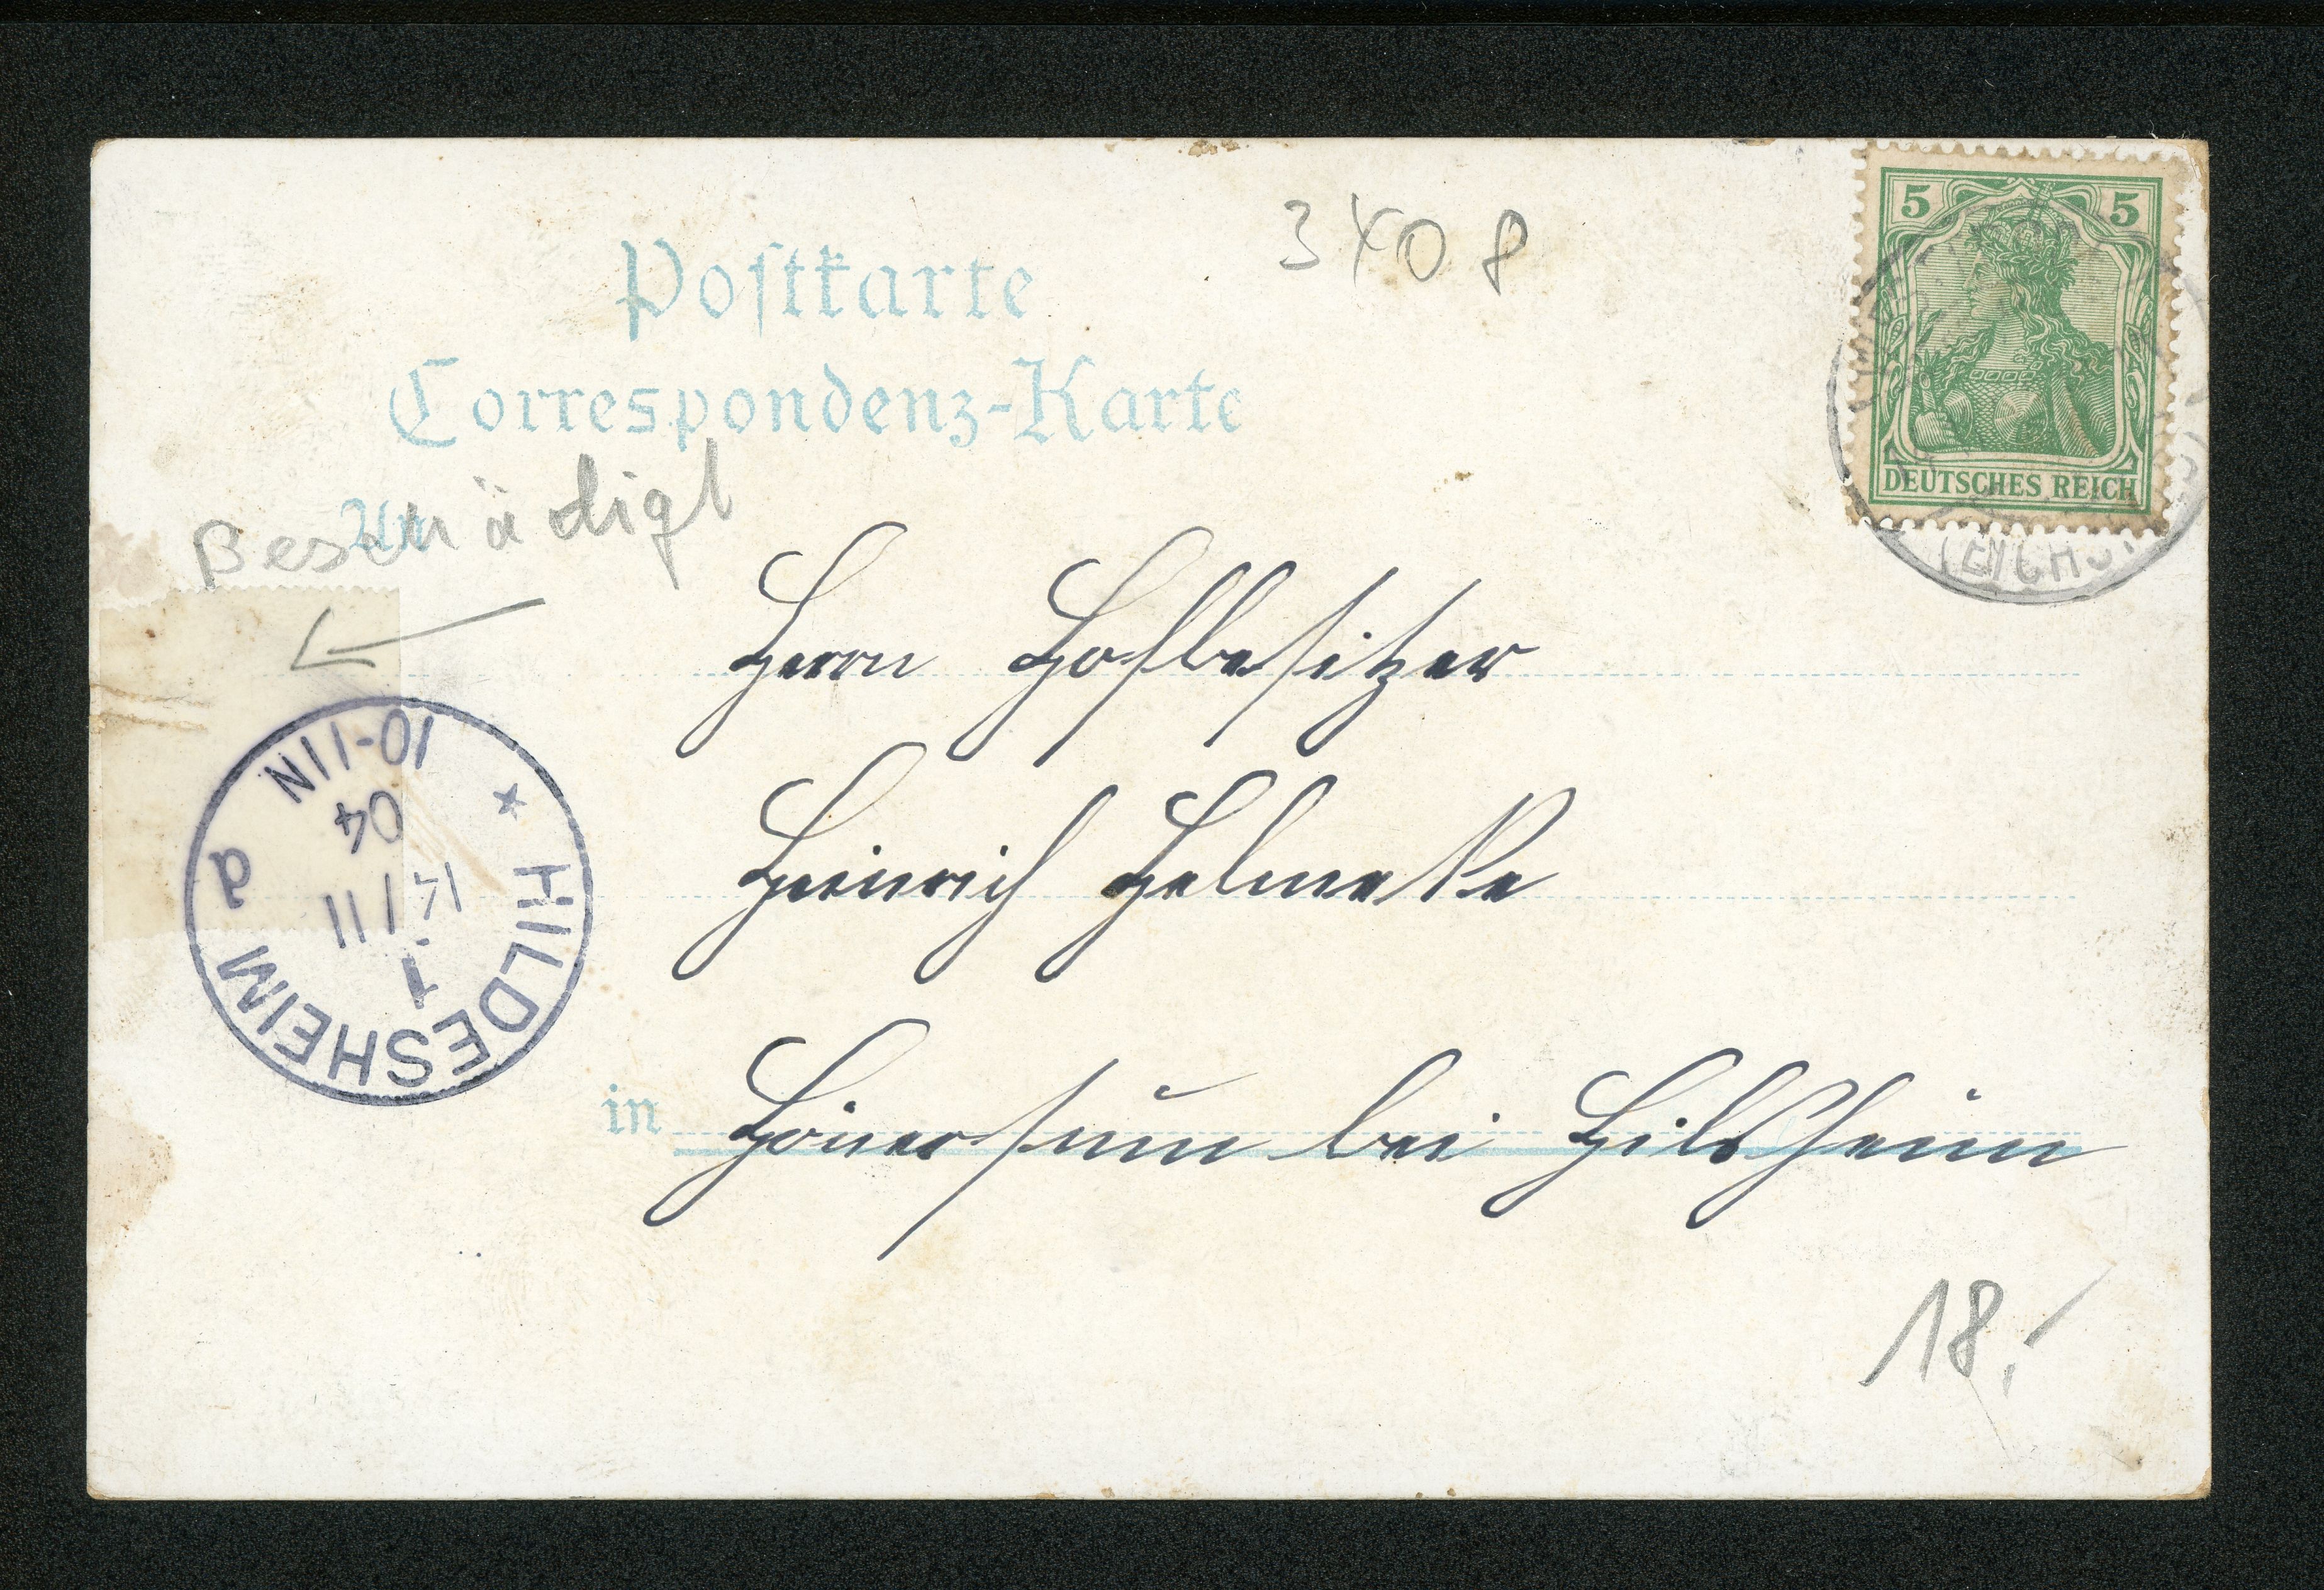 3408
5 5
DEUTSCHES REICH
Postkarte
Correspondenz-Karte
An
Beschädigt
Herrn Hofbesitzer
Heinrich Helmeke
in Hönersum bei Hildsheim
* HILDESHEIM d
1
14/11
04
10-11N
18,-